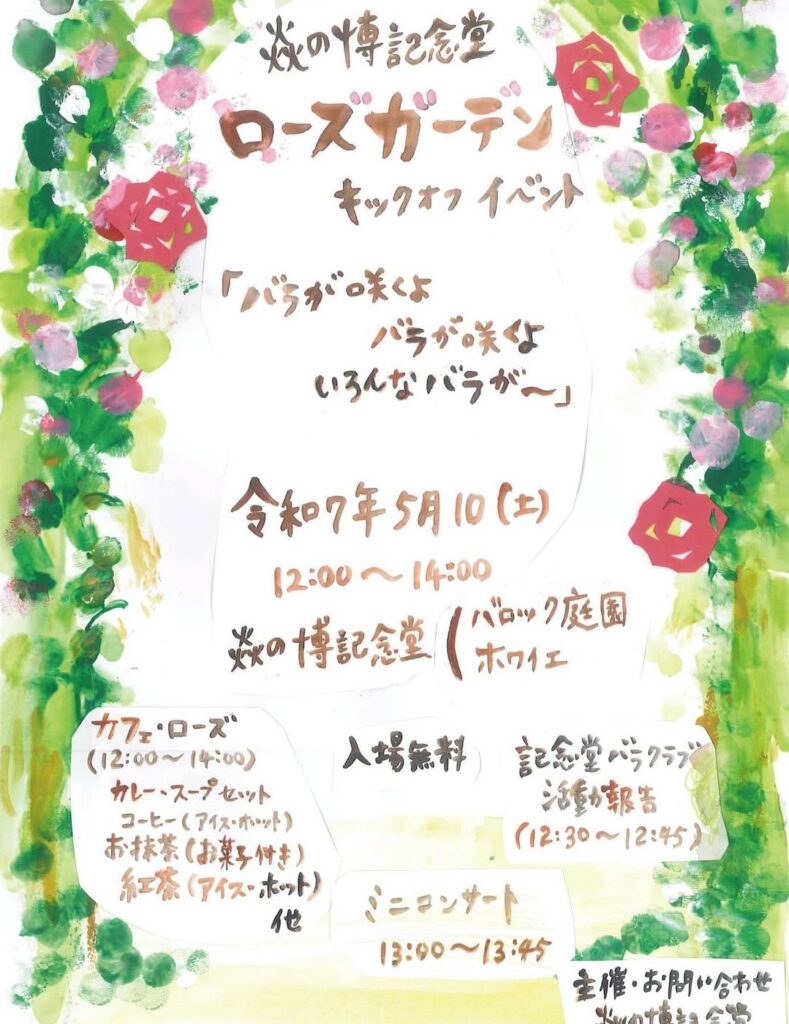 焱の博記念堂
ローズガーデン
キックオフ イベント
「バラが咲くよ
バラが咲くよ
いろんなバラが〜」
令和7年5月10(土)
12:00〜14:00
焱の博記念堂
バロック庭園
ホワイエ
カフェ・ローズ
(12:00〜14:00)
カレー・スープセット
コーヒー(アイス・ホット)
お抹茶(お菓子付き)
紅茶(アイス・ホット)
他
入場無料
記念堂バラクラブ
活動報告
(12:30〜12:45)
ミニコンサート
13:00〜13:45
主催・お問い合わせ
焱の博記念堂